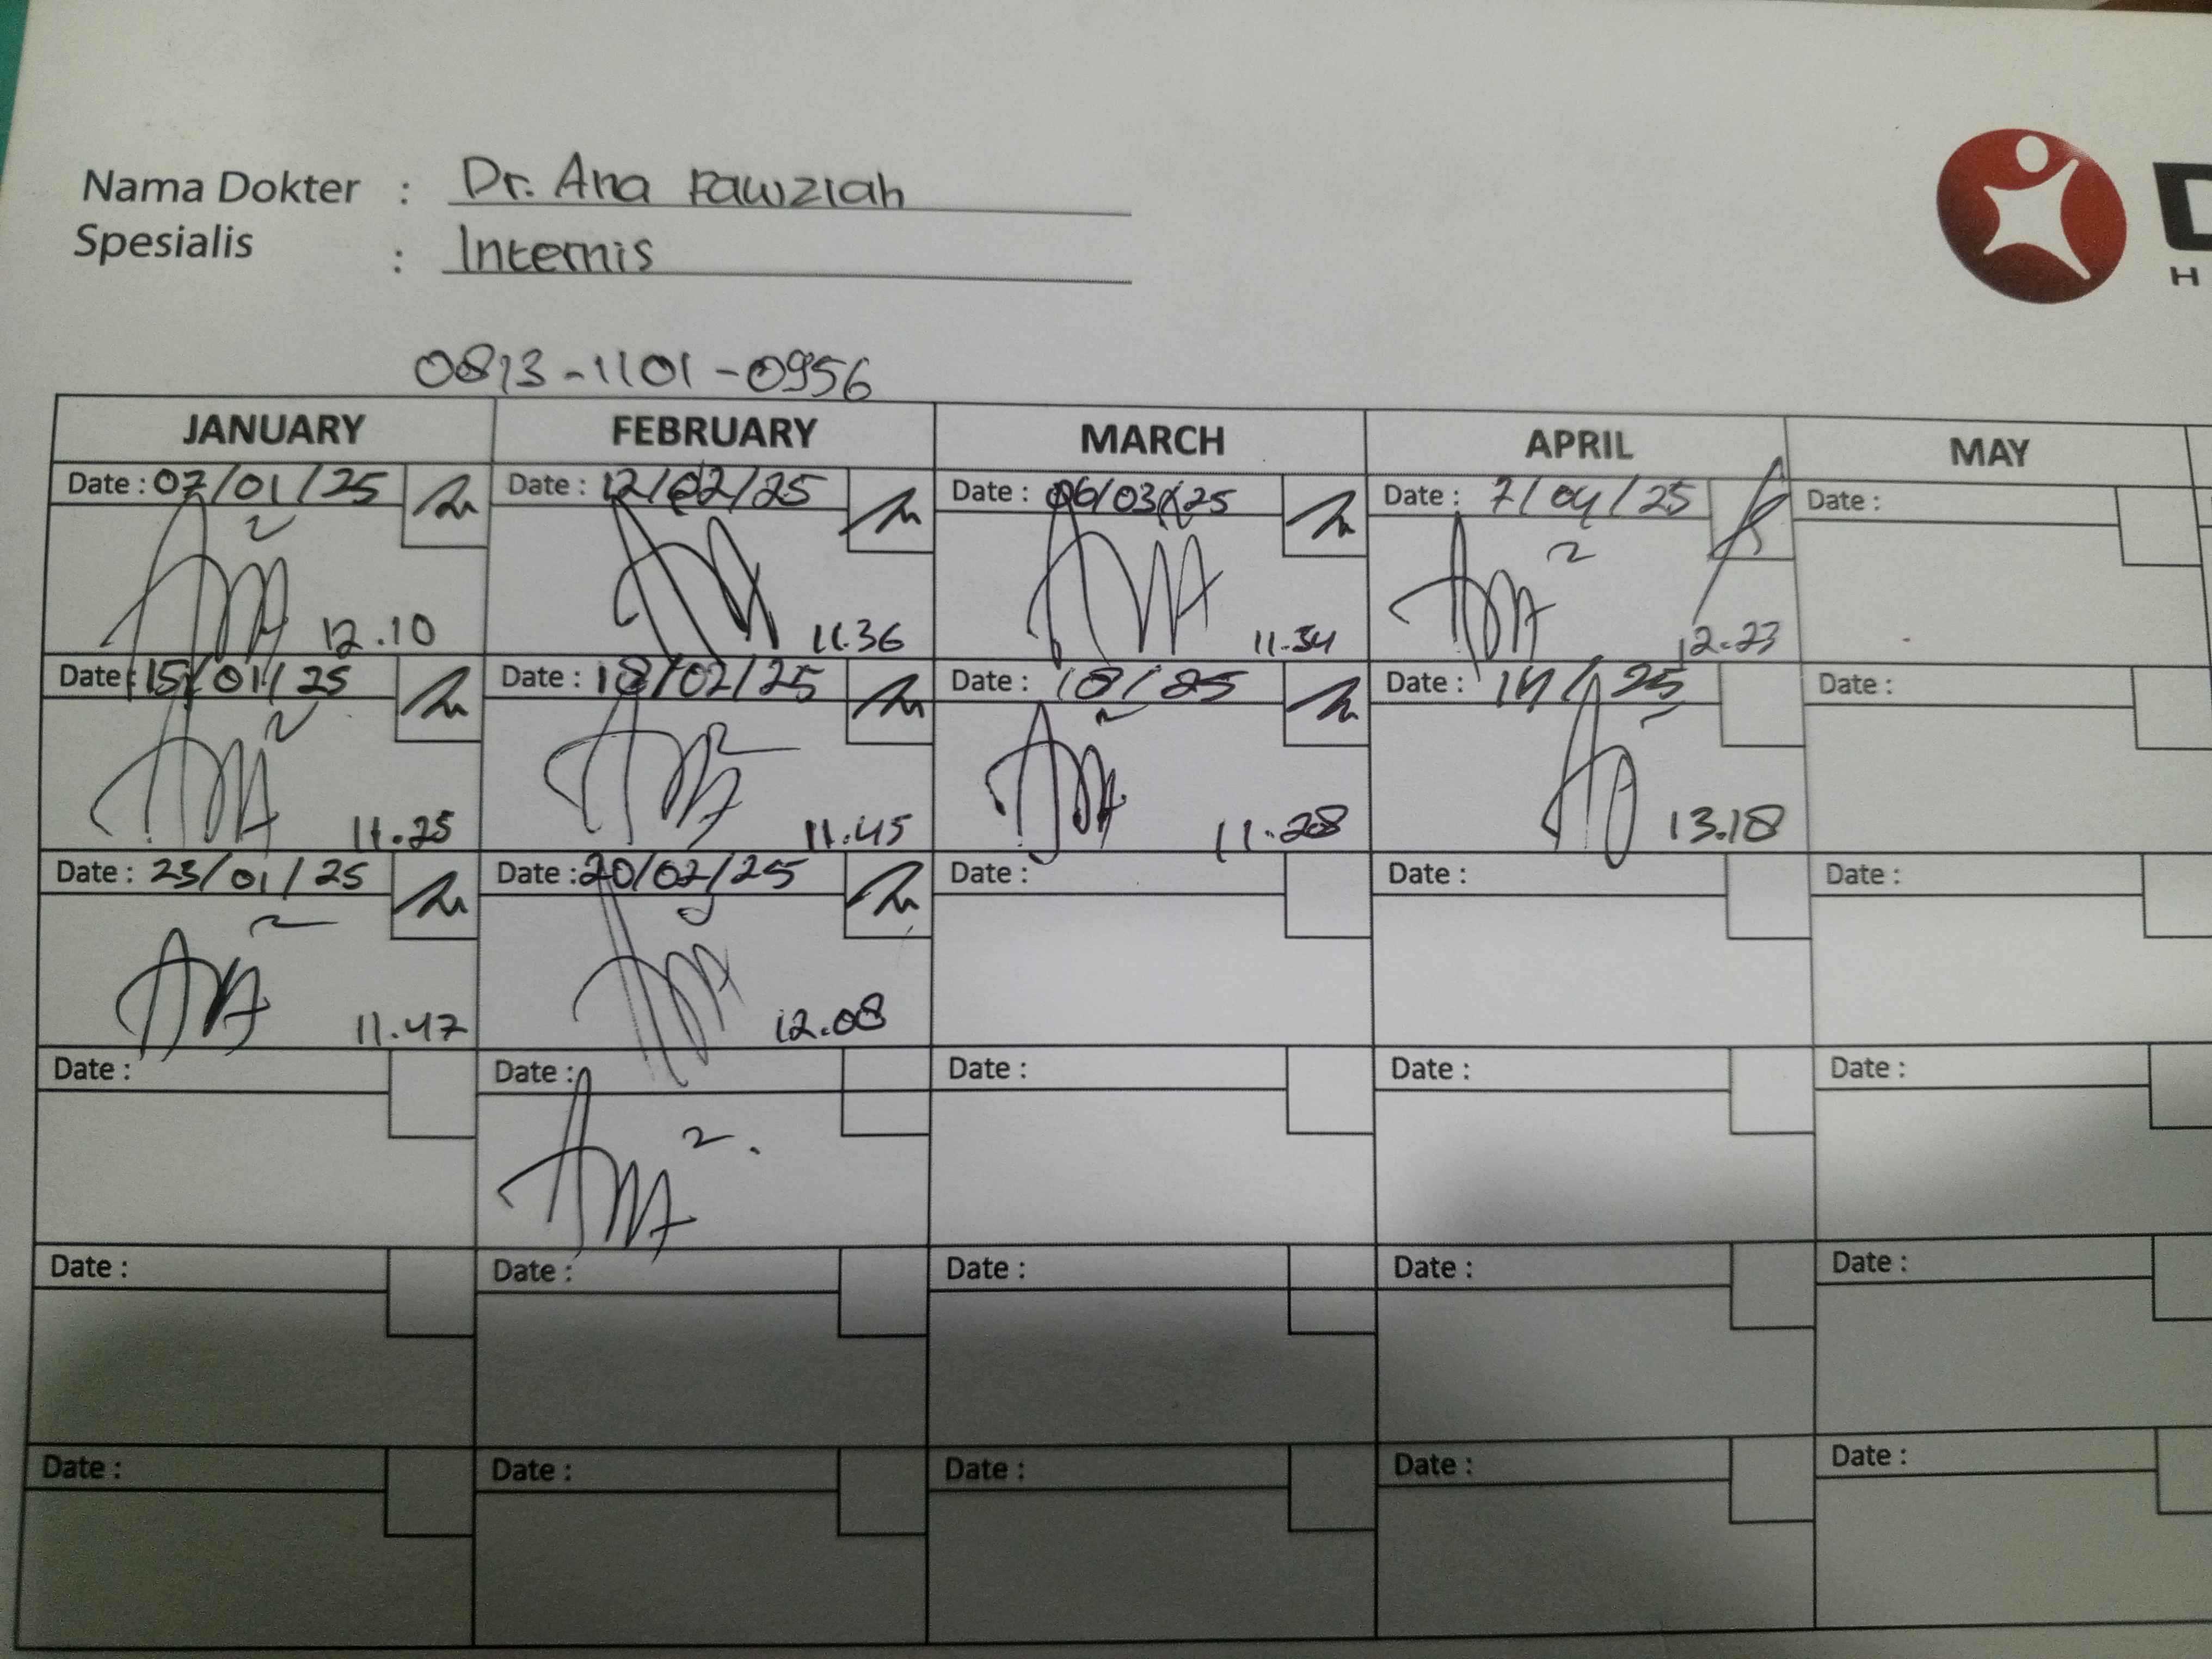 Nama Dokter : Dr. Ana Fawziah
Spesialis : Internis
D
H
0813-1101-0956
JANUARY FEBRUARY MARCH APRIL MAY
Date : 07/01/25 Date : 12/02/25 Date : 06/03/25 Date : 7/04/25 Date :
12.10 11.36 11.34 12.23
Date : 15/01/25 Date : 18/02/25 Date : 18/25 Date : 14/25 Date :
11.25 11.45 11.28 13.18
Date : 23/01/25 Date : 20/02/25 Date : Date : Date :
11.47 12.08
Date : Date : Date : Date : Date :
Date : Date : Date : Date : Date :
Date : Date : Date : Date : Date :